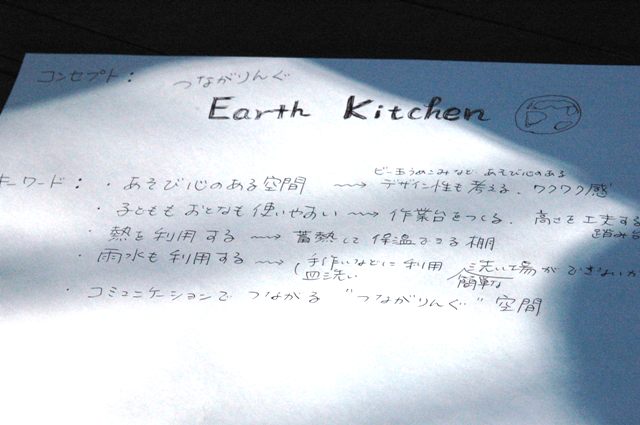 コンセプト： つながりんぐ
Earth Kitchen
ビー玉うめこみなど あそび心のある
キーワード： ・あそび心のある空間 〜〜→ デザイン性も考える、ワクワク感
・子どももおとなも使いやすい 〜〜→ 作業台をつくる、高さを工夫する
踏み台
・熱を利用する 〜〜→ 蓄熱して保温できる棚
・雨水も利用する 〜〜→ 手洗いなどに利用 洗い場ができないか
皿洗い 簡単な
・コミュニケーションでつながる "つながりんぐ" 空間